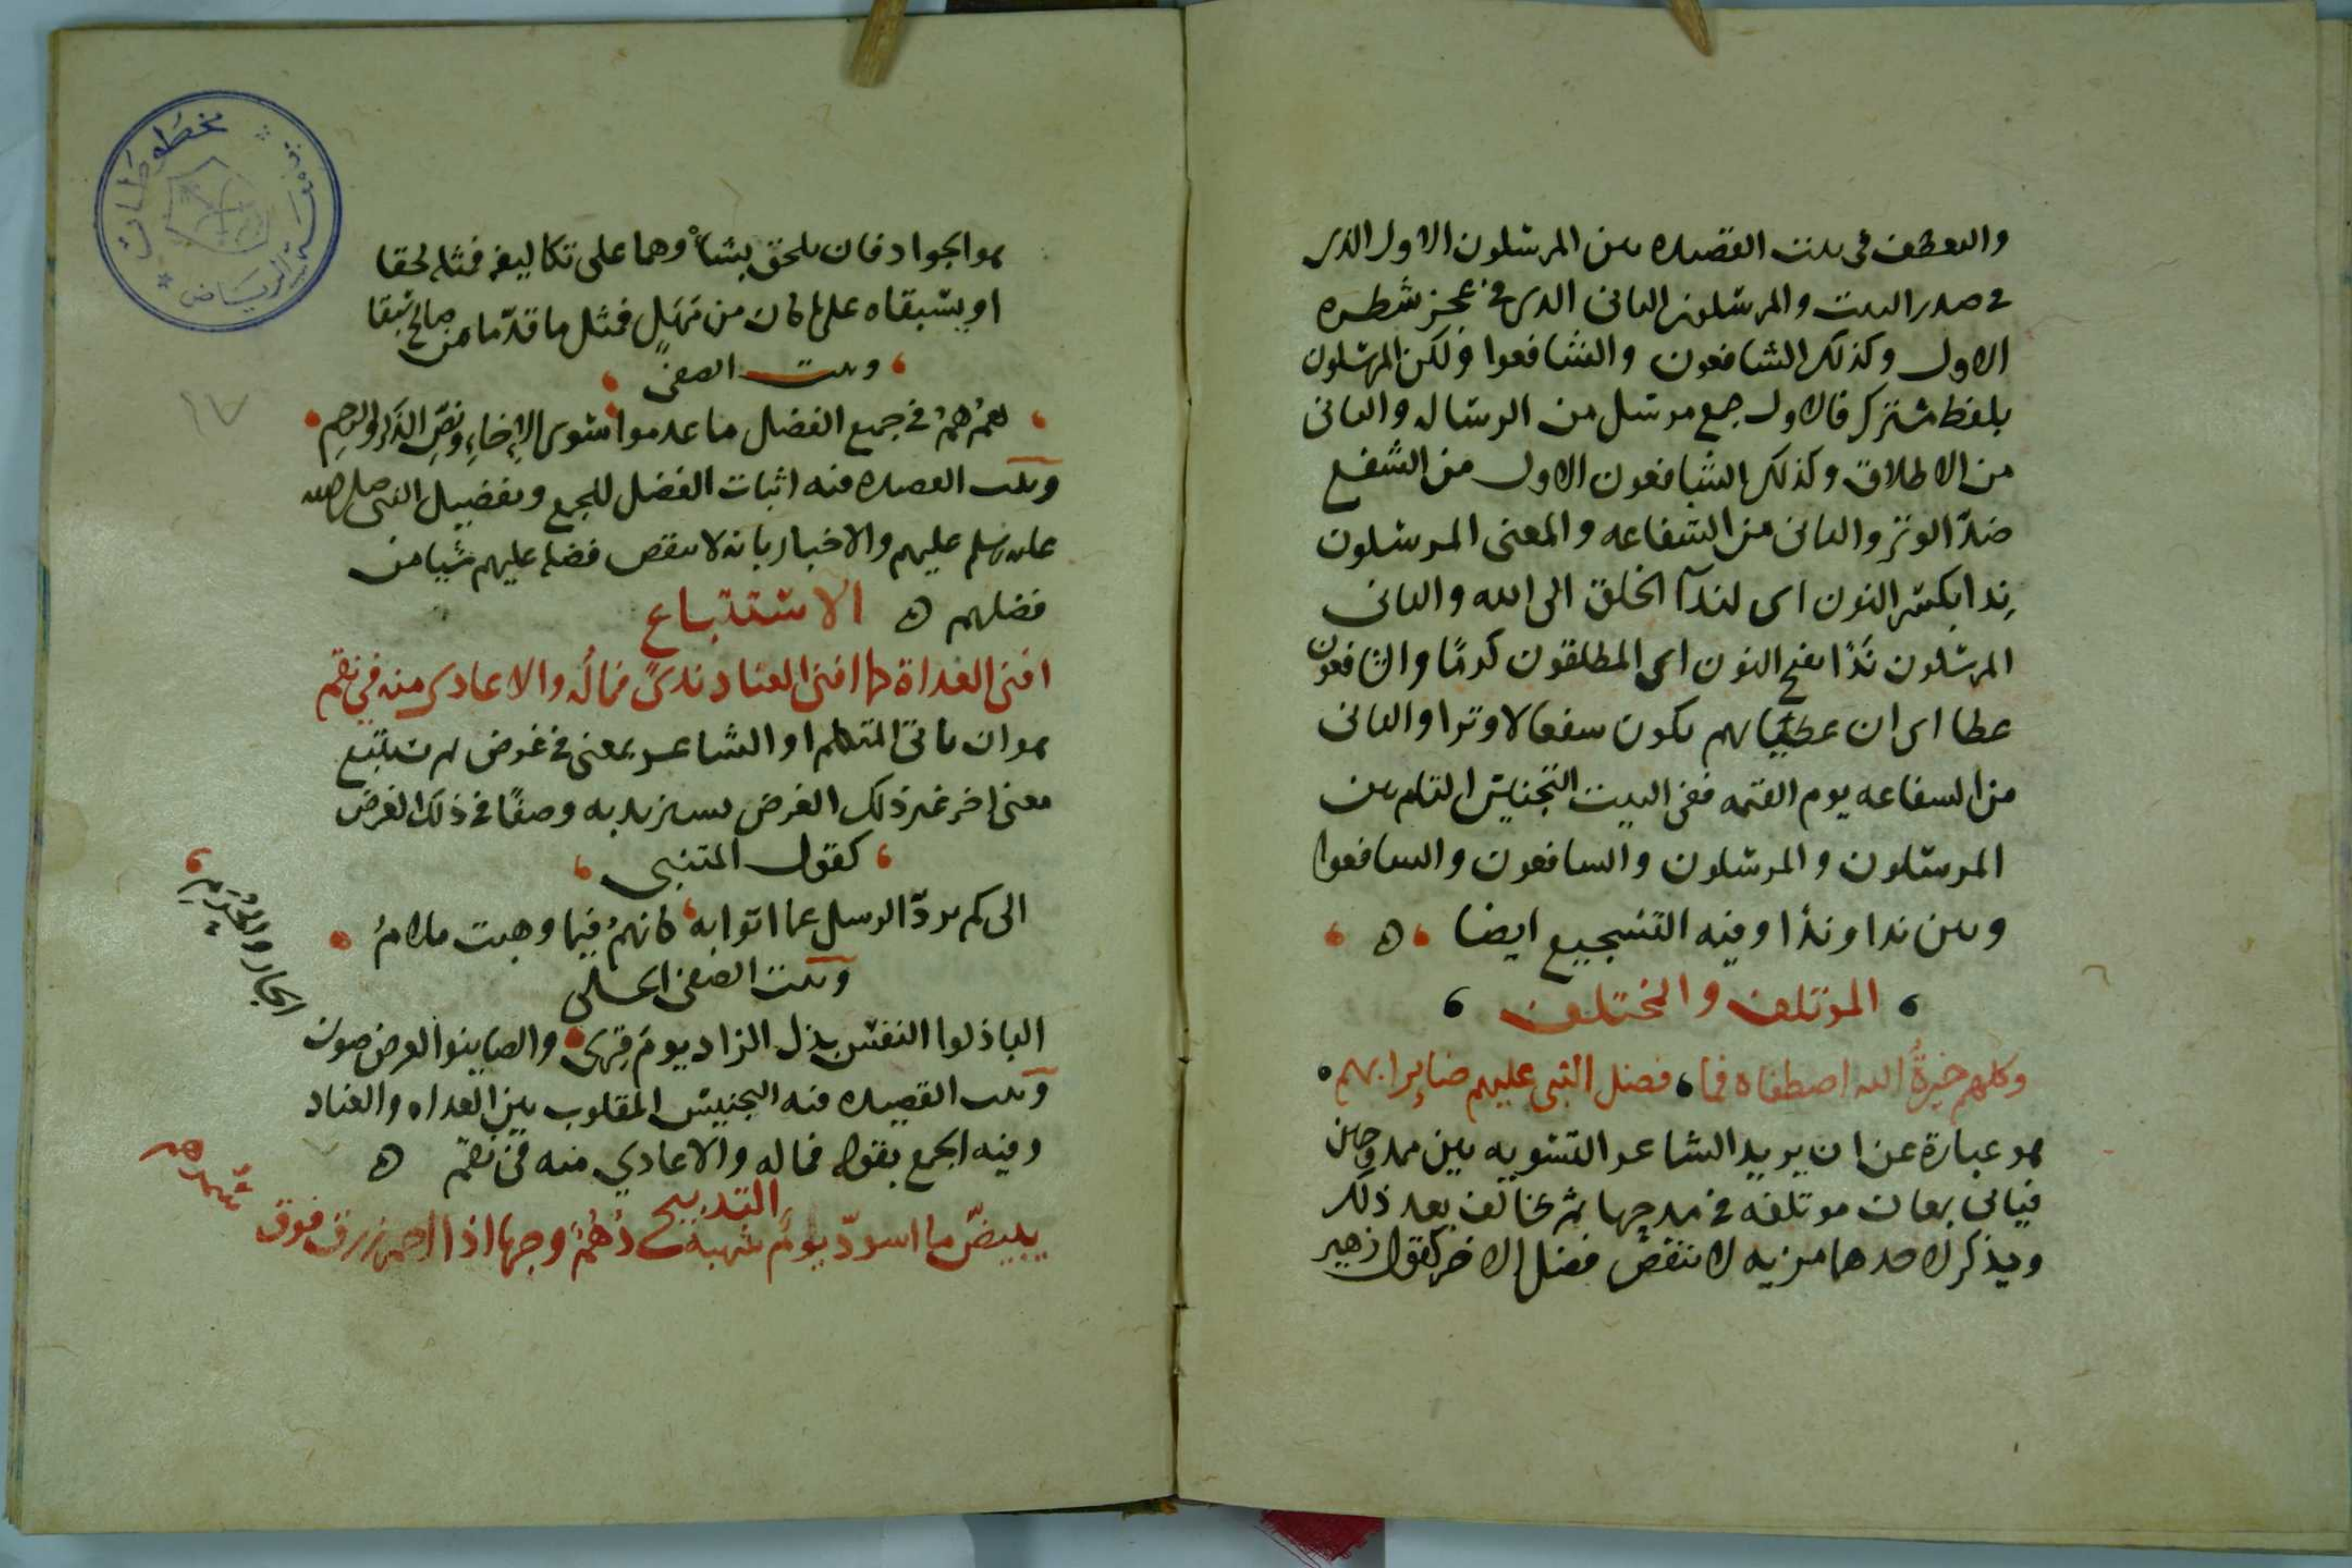 والتعطف فى بيت القصيده بين المرسلون الاول الذى
فى صدر البيت والمرسلون الثانى الذى فى عجز شطره
الاول وكذلك الشافعون والشافعوا ولكن المرسلون
بلفظ مشترك فالاول جمع مرسل من الرساله والثانى
من الاطلاق وكذلك الشافعون الاول من الشفع
ضدّ الوتر والثانى من الشفاعه والمعنى المرسلون
نِدا بكسر النون اى لندآ الخلق الى الله والثانى
المرسلون نَدًا بفتح النون اى المطلقون كرمًا والشافعون
عطا اى ان عطيتهم يكون شفعا لا وترا والثانى
من الشفاعه يوم القيمه ففى البيت التجنيس التام بين
المرسلون والمرسلون والشافعون والشافعوا
وبين ندا وندًا وفيه التسجيع ايضا ه
المؤتلف والمختلف
وكلهم خيرةُ الله اصطفاه فما فضل النبى عليهم ضايرا بهم
هو عبارة عن ان يريد الشاعر التسويه بين ممدوحين
فياتى بمعان موتلفه فى مدحهما ثم يخالف بعد ذلك
ويذكر لاحدهما مزيه لا تنقص فضل الاخر كقول زهير
هو الجواد فان يلحق بشاْوهما على تكاليفه فمثله لحقا
او يسبقاه على ما كان من مَهَلٍ فمثل ما قدّما من صالح سبقا
وبيت الصفى
همُ همُ فى جميع الفضل ما عدموا سوى الإخاءِ ونصّ الذكر والرحم
وبيت القصيده فيه اثبات الفضل للجمع وتفضيل النبى صلى الله
عليه وسلم عليهم والاخبار بانه لا ينقص فضله عليهم شيا من
فضلهم ه الاستتباع
افنى العداة كما افنى العتاد ندىً فماله والاعادى منه فى نقم
هو ان ياتى المتكلم او الشاعر بمعنى فى غرض ثم يستتبع
معنى اخر غير ذلك الغرض يستزيد به وصفًا فى ذلك الغرض
كقول المتنبى
الى كم تردّ الرسل عما اتوا به كانهمُ فيما وهبت ملامُ
وبيت الصفى الحلى
الباذلوا النفس بذل الزاد يوم قِرى والصاينوا العرض صون
الجار والحُرَمِ
وبيت القصيده فيه التجنيس المقلوب بين العداه والعتاد
وفيه الجمع بقوله فماله والاعادي منه فى نقم ه
التدبيج
يبيضّ ما اسودّ يومٌ شهبه دُهُمٌ وجها اذا احمرّ زرق فوق